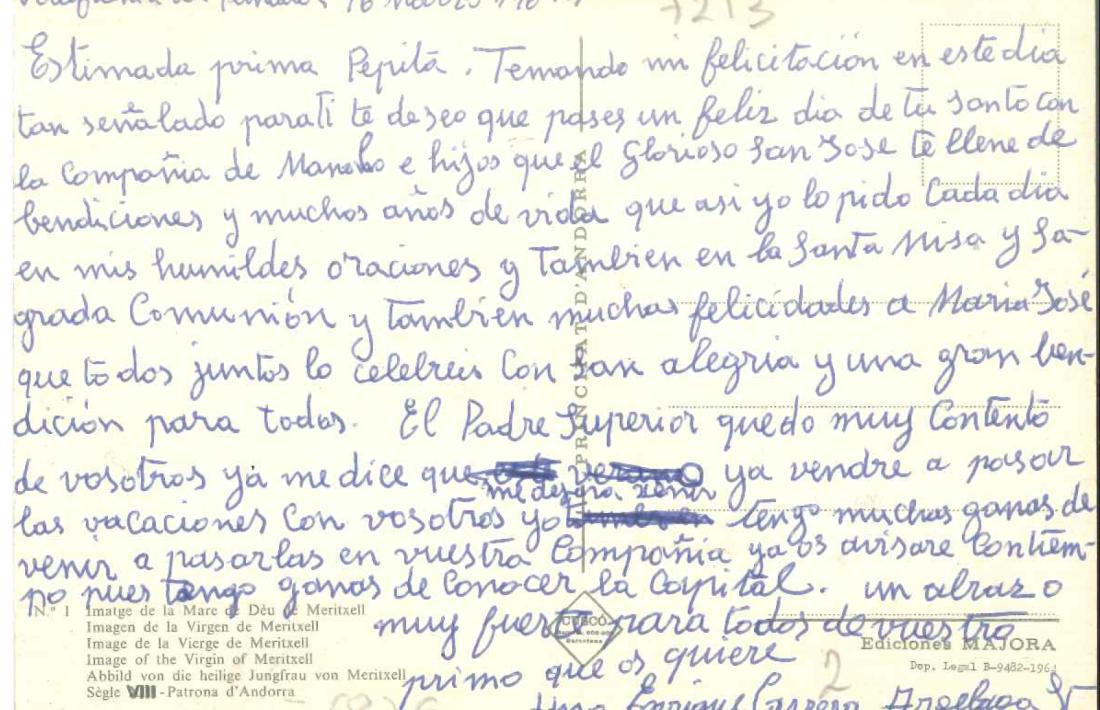 16 Marzo
7213
Estimada prima Pepita. Temando mi felicitación en este dia
tan señalado para ti te deseo que pases un feliz dia de tu santo con
la compañia de Manolo e hijos que el Glorioso San Jose te llene de
bendiciones y muchos años de vida que asi yo lo pido cada dia
en mis humildes oraciones y tambien en la Santa Misa y Sa-
grada Comunión y tambien muchas felicidades a Maria José
que todos juntos lo celebreis con san alegria y una gran ben-
dición para todos. El Padre Superior quedo muy contento
de vosotros ya me dice que verano ya vendre a pasar
me dejara venir
las vacaciones con vosotros yo tengo muchas ganas de
venir a pasarlas en vuestra compañia ya os avisare contiem-
po pues tengo ganas de conocer la Capital. un abrazo
muy fuerte para todos de vuestro
primo que os quiere
Enrique
2
PRINCIPAT D'ANDORRA
N.º 1 Imatge de la Mare de Dèu de Meritxell
Imagen de la Virgen de Meritxell
Image de la Vierge de Meritxell
Image of the Virgin of Meritxell
Abbild von die heilige Jungfrau von Meritxell
Sègle VIII - Patrona d'Andorra
CUSCÓ
Barcelona
Ediciones MAJORA
Dep. Legal B-9482-1964